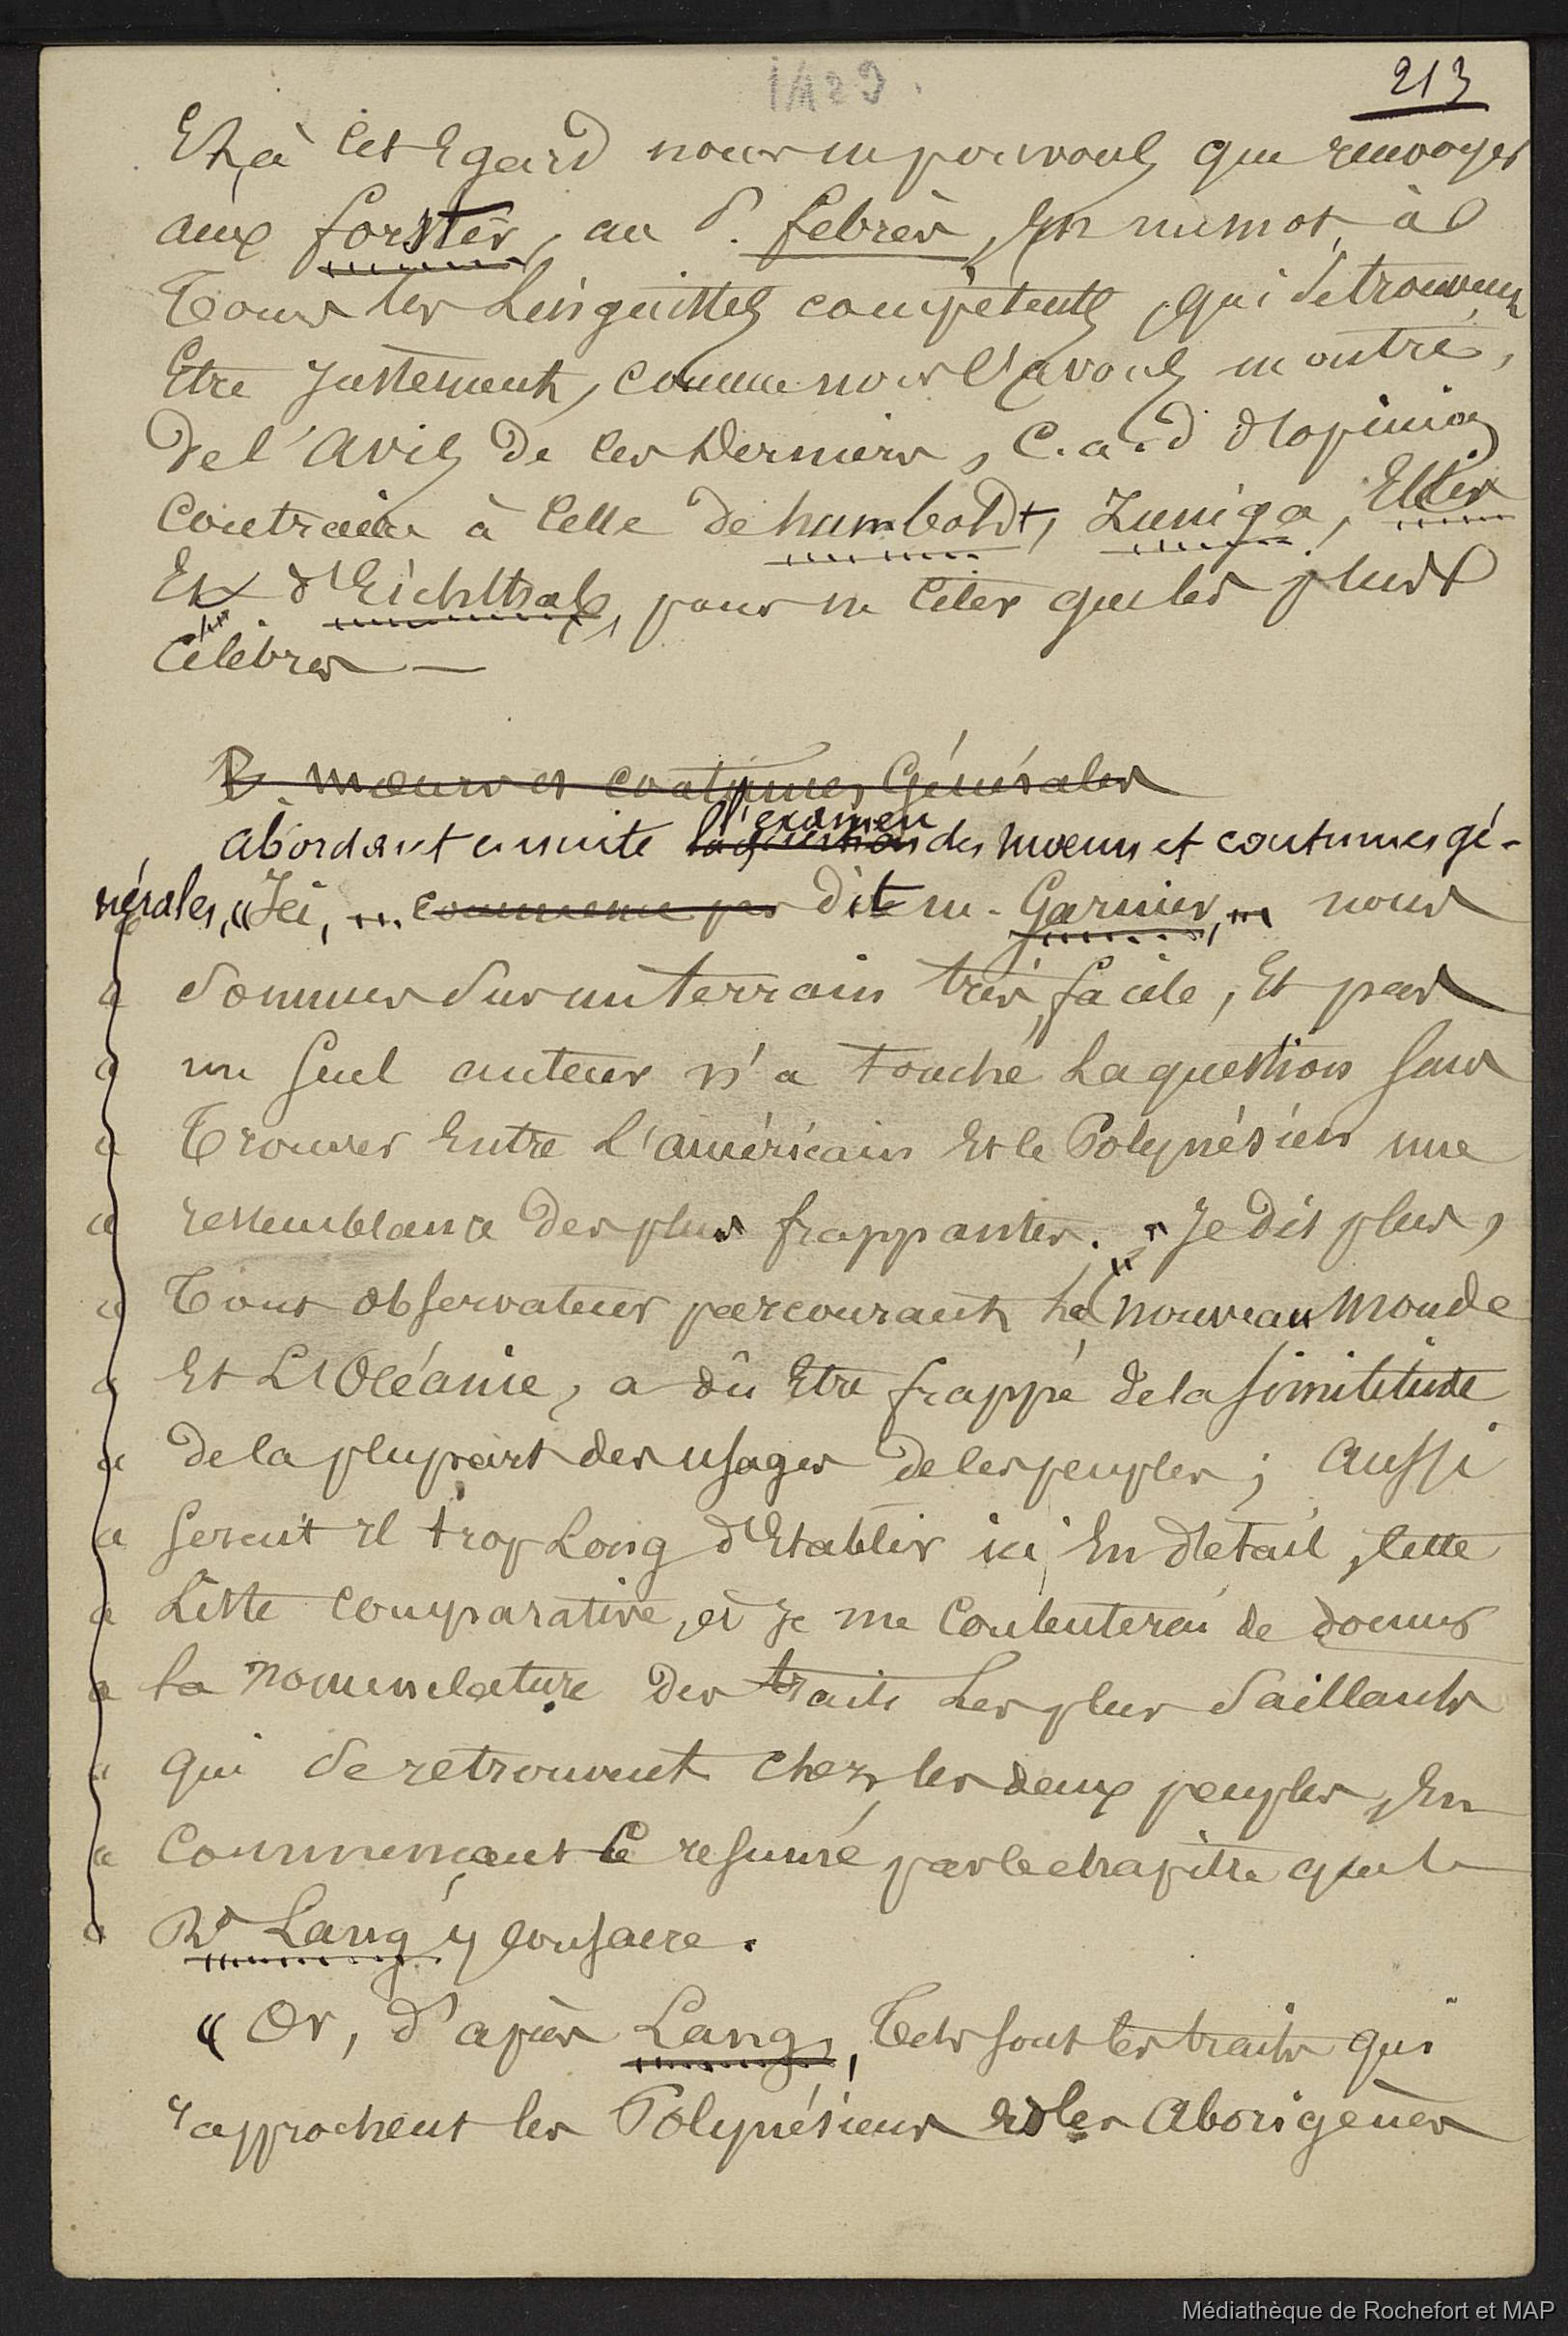 1429.
213
Et, à cet Egard nous ne pouvons que renvoyer
aux forster, au P. febrès, En un mot, à
Tous les Linguistes compétents, qui se trouvent
Etre justement, comme nous l'avons montré,
de l'avis de ces derniers, C. a. d d'opinion
Contraire à Celle de humboldt, Zuniga, Ellis
Et d'Eichthal, pour ne Citer que les plus
Célèbres —
B mœurs et coutumes Générales
abordant ensuite la question l'examen des mœurs et coutumes gé-
nérales, "Ici, ... comme dit m. Garnier, ... nous
" sommes sur un terrain très facile, Et pas
" un seul auteur n'a touché La question sans
" Trouver Entre L'américain Et le Polynésien une
" ressemblance des plus frappantes. "Je dis plus,
" Tout observateur parcourant le nouveau monde
" Et L'Océanie, a dû Etre frappé de la similitude
" de la plupart des usages de ces peuples; aussi
" serait il trop Long d'Etablir ici En détail, cette
" Liste comparative, et je me Contenterai de donner
" la nomenclature des traits Les plus saillants
" qui se retrouvent chez les deux peuples, En
" Commençant ce resumé par le chapitre que le
" Dr Lang y consacre.
" Or, d'après Lang, Tels sont les traits qui
rapprochent les Polynésiens des Aborigènes
Médiathèque de Rochefort et MAP